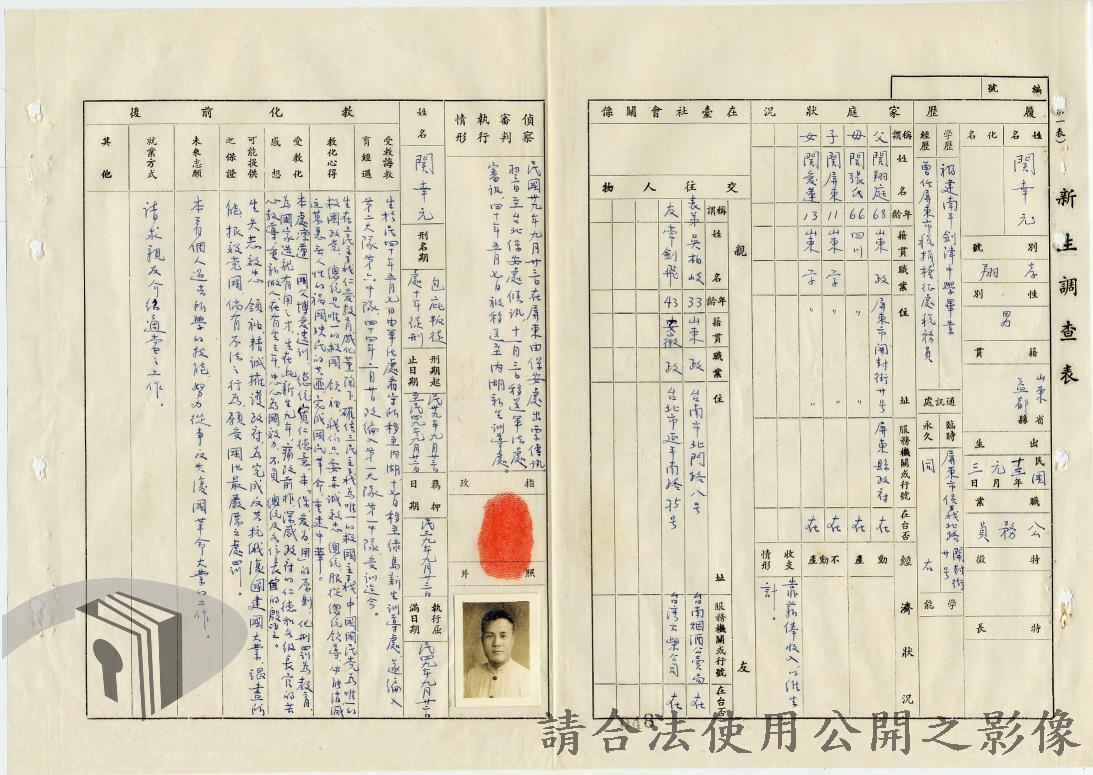 新生調查表
編號
履歷
姓名
化名
關幸元
別號
孝翔
性別
男
籍貫
山東省
益都縣
出生
民國十三年元月三日
職業
公務員
特徵
特長
學歷
福建南平劍津中學畢業
經歷
曾任屏東市稅捐稽征處稅務員
通訊處
臨時
屏東市信義北路開封街廿號
永久
同右
學能
家庭狀況
稱謂 姓名 年齡 籍貫 職業 住址 服務機關或行號 在台否
父 關翔庭 68 山東 政 屏東市開封街廿號 屏東縣政府 在
母 關張氏 66 四川 〃 在
子 關屏東 11 山東 學 〃 在
女 關愛蓮 13 山東 學 〃 在
經濟狀況
動產
不動產
收支情形
靠薪俸收入以維生計。
在臺社會關係
親友
交往人物
稱謂 姓名 年齡 籍貫 職業 住址 服務機關或行號 在台否
表弟 吳柏岐 33 山東 政 台南市北門路八号 台南烟酒公賣局 在
友 常劍飛 43 安徽 政 台北市延平南路75号 台湾火柴公司 在
偵察審判執行情形
民國卅九年九月廿三日在屏東由保安處出票傳訊
翌日至台北保安處候訊十一月三日移送軍法處
審訊四十年五月七日被移送至內湖新生訓導處。
指玟
照片
姓名
關幸元
刑名刑期
包庇叛徒
處十年徒刑
刑期起止日期
民卅九年九月廿三日
至民四九年九月廿二日
羈押日期
民三九年九月廿三日
執行屆滿日期
民四九年九月廿二日
教化前後
受教誨教育經過
生於民四十年五月七日由軍法處看守所移至內湖十七日移至綠島新生訓導處遂編入
第二大隊第六中隊四十四年二月廿日改編入第一大隊第一中隊受訓迄今。
教化心得
生在三民主義仁愛教育感化薰陶下確信三民主義為唯一的救國主義中國國民党為唯一的
救國政党，總統是唯一的救國領袖，我們只要赤誠效忠總統服從總統領導俾能消滅
這萬惡无人性的禍國殃民的共匪完成國民革命重建中華。
受教化感想
本處秉遵國父博愛遺訓總統寬仁德意本「保愛為用」的原則化刑罰為教育，
為國家造就有用之才，生在此新生九年，痛改前非深感政府的仁德和各級長官的苦
心教導，重新做人在有生之年忠心為國效力不負總統及各位長官的殷望。
可能提供之保證
生矢志效忠領袖精誠擁護政府為完成反共抗俄復國建國大業，願盡所
能，報效党國倘有不法之行為願受國法最嚴厲之處罰。
未來志願
本着個人過去所學的技能努力從事反共復國革命大業的工作。
就業方式
請求親友介紹適當之工作。
其他
48
請合法使用公開之影像